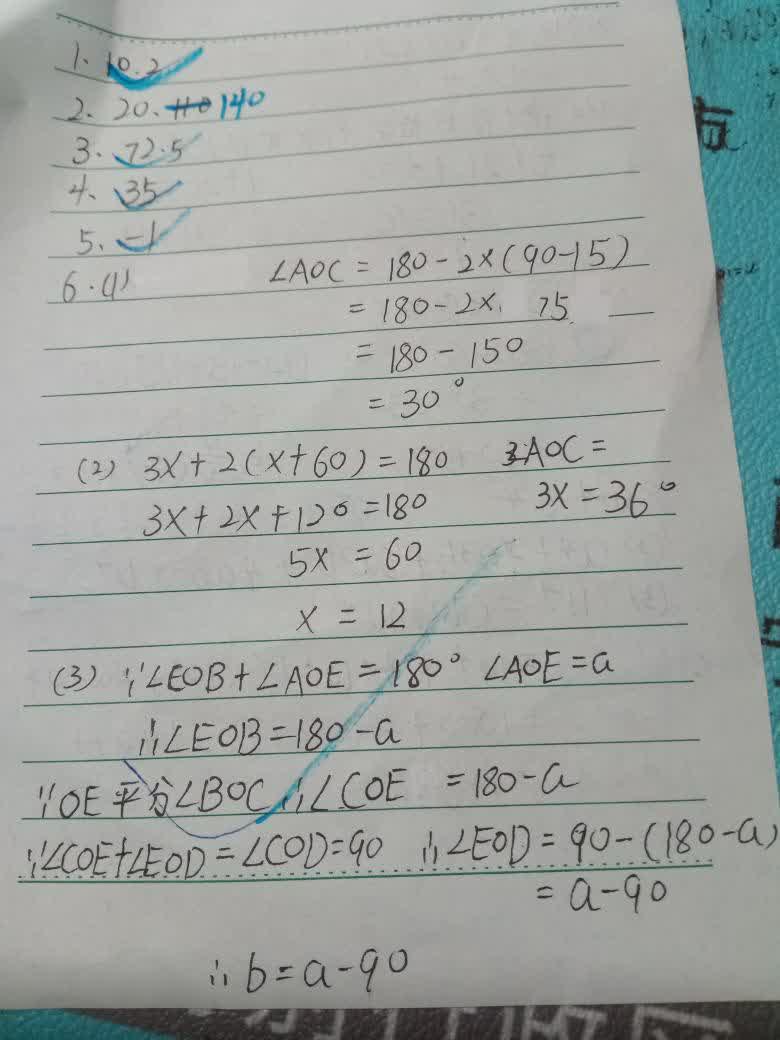 1. 10.2
2. 20. 140
3. 72.5
4. 35
5. -1
6.(1) ∠AOC = 180-2×(90-15)
= 180-2× 75
= 180-150
= 30°
(2) 3x+2(x+60)=180 3AOC=
3x+2x+120=180 3x=36°
5x = 60
x = 12
(3) ∵∠EOB+∠AOE=180° ∠AOE=a
∴∠EOB=180-a
∵OE平分∠BOC ∴∠COE =180-a
∵∠COE+∠EOD=∠COD=90 ∴∠EOD=90-(180-a)
= a-90
∴b=a-90